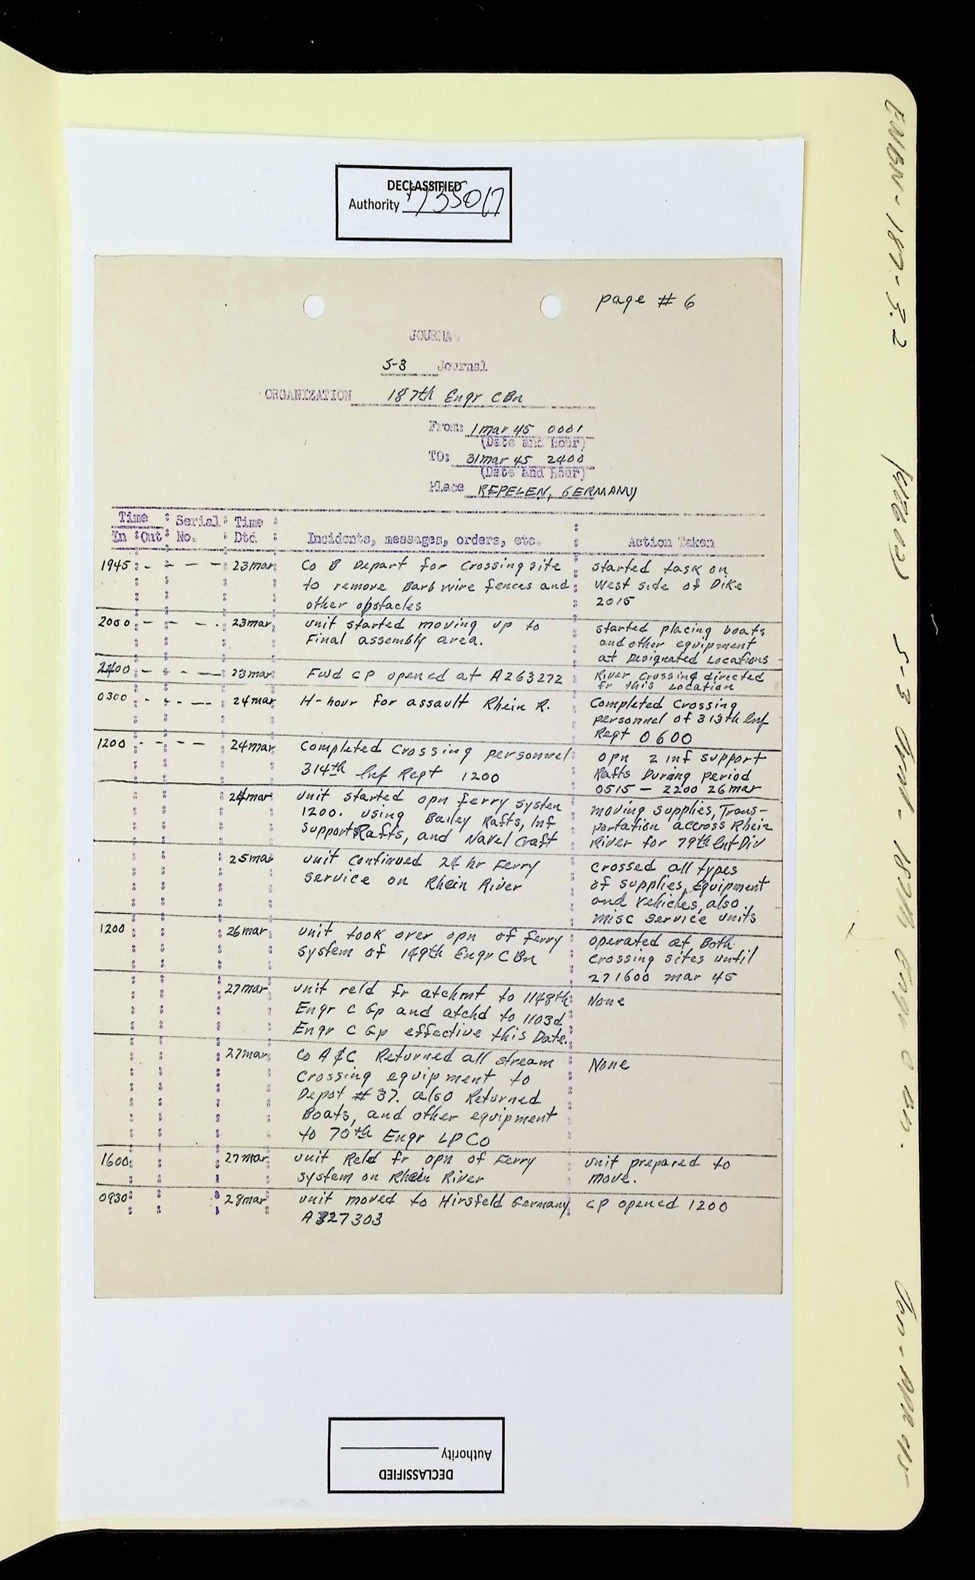 DECLASSIFIED
Authority 735017
page # 6
JOURNAL
S-3 Journal
ORGANIZATION 187th Engr CBn
From: 1 mar 45 0001
(Date and Hour)
TO: 31 mar 45 2400
(Date and Hour)
Place REPELEN, GERMANY
Time : Serial : Time
In : Out : No. : Dtd Incidents, messages, orders, etc. : Action Taken
1945 - - - - 23mar Co B Depart for Crossing site started task on
to remove Barb wire fences and West side of Dike
other obstacles 2015
2000 - - - . 23mar unit started moving up to started placing boats
Final assembly area. and other equipment
at Designated Locations
2400 - - - - 23mar Fwd CP opened at A263272 River Crossing directed
fr this Location
0300 - - - - 24mar H-hour for assault Rhein R. Completed Crossing
personnel of 313th Inf
Regt 0600
1200 - - - - 24mar Completed Crossing personnel opn 2 inf support
314th Inf Regt 1200 Rafts During period
0515 - 2200 26mar
24mar unit started opn ferry system moving supplies, Trans-
1200. using Bailey Rafts, Inf portation accross Rhein
Support Rafts, and Navel Craft River for 79th Inf Div
25mar unit continued 24 hr Ferry crossed all types
service on Rhein River of supplies, equipment
and vehicles, also
misc service units
1200 26mar unit took over opn of ferry operated at Both
system of 149th Engr CBn crossing sites until
271600 mar 45
27mar unit reld fr atchmt to 1148th None
Engr C Gp and atchd to 1103d
Engr C Gp effective this Date.
27mar Co A & C Returned all stream None
Crossing equipment to
Depot # 37. also Returned
Boats, and other equipment
to 70th Engr LP Co
1600 27mar unit Reld fr opn of Ferry unit prepared to
system on Rhein River move.
0930 28mar unit moved to Hirsfeld Germany CP opened 1200
A327303
DECLASSIFIED
Authority
ENBN-187-3.2 S-3 Jrnl - 187th Engr C Bn. Jan-Apr 45